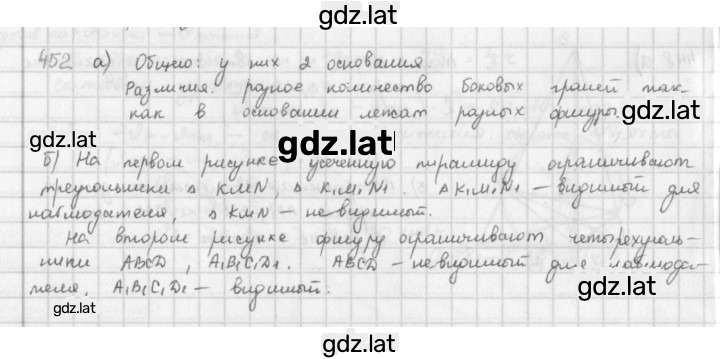 gdz.lat
452 а) Общего: у них 2 основания.
Различия: разное количество боковых граней так-
как в основании лежат разных фигуры.
gdz.lat
gdz.lat
gdz.lat
б) На первом рисунке усеченную пирамиду ограничивают
треугольники Δ KMN, Δ K₁M₁N₁. Δ K₁M₁N₁ – видимый для
наблюдателя, Δ KMN – невидимый.
На втором рисунке фигуру ограничивают четырехуголь-
ники ABCD, A₁B₁C₁D₁. ABCD – невидимый для наблюда-
теля, A₁B₁C₁D₁ – видимый.
gdz.lat
gdz.lat
gdz.lat